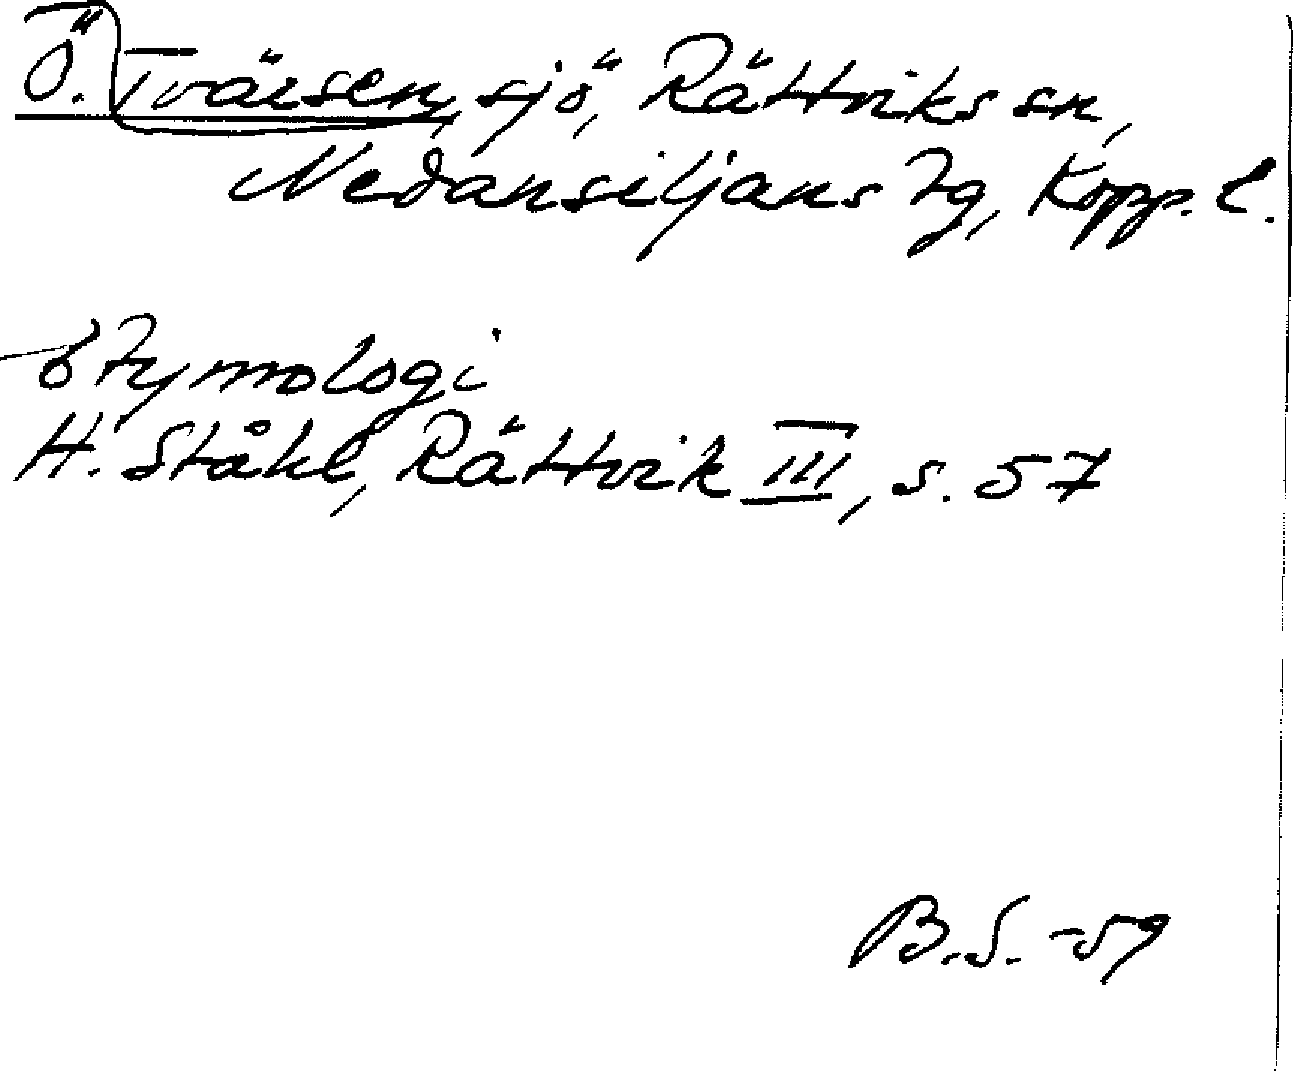 Ö. Tvärsen, sjö, Rättviks sn,
Nedansiljans tg, Kopp. l.
Etymologi
H. Ståhl, Rättvik III, s. 57
B.S. -59